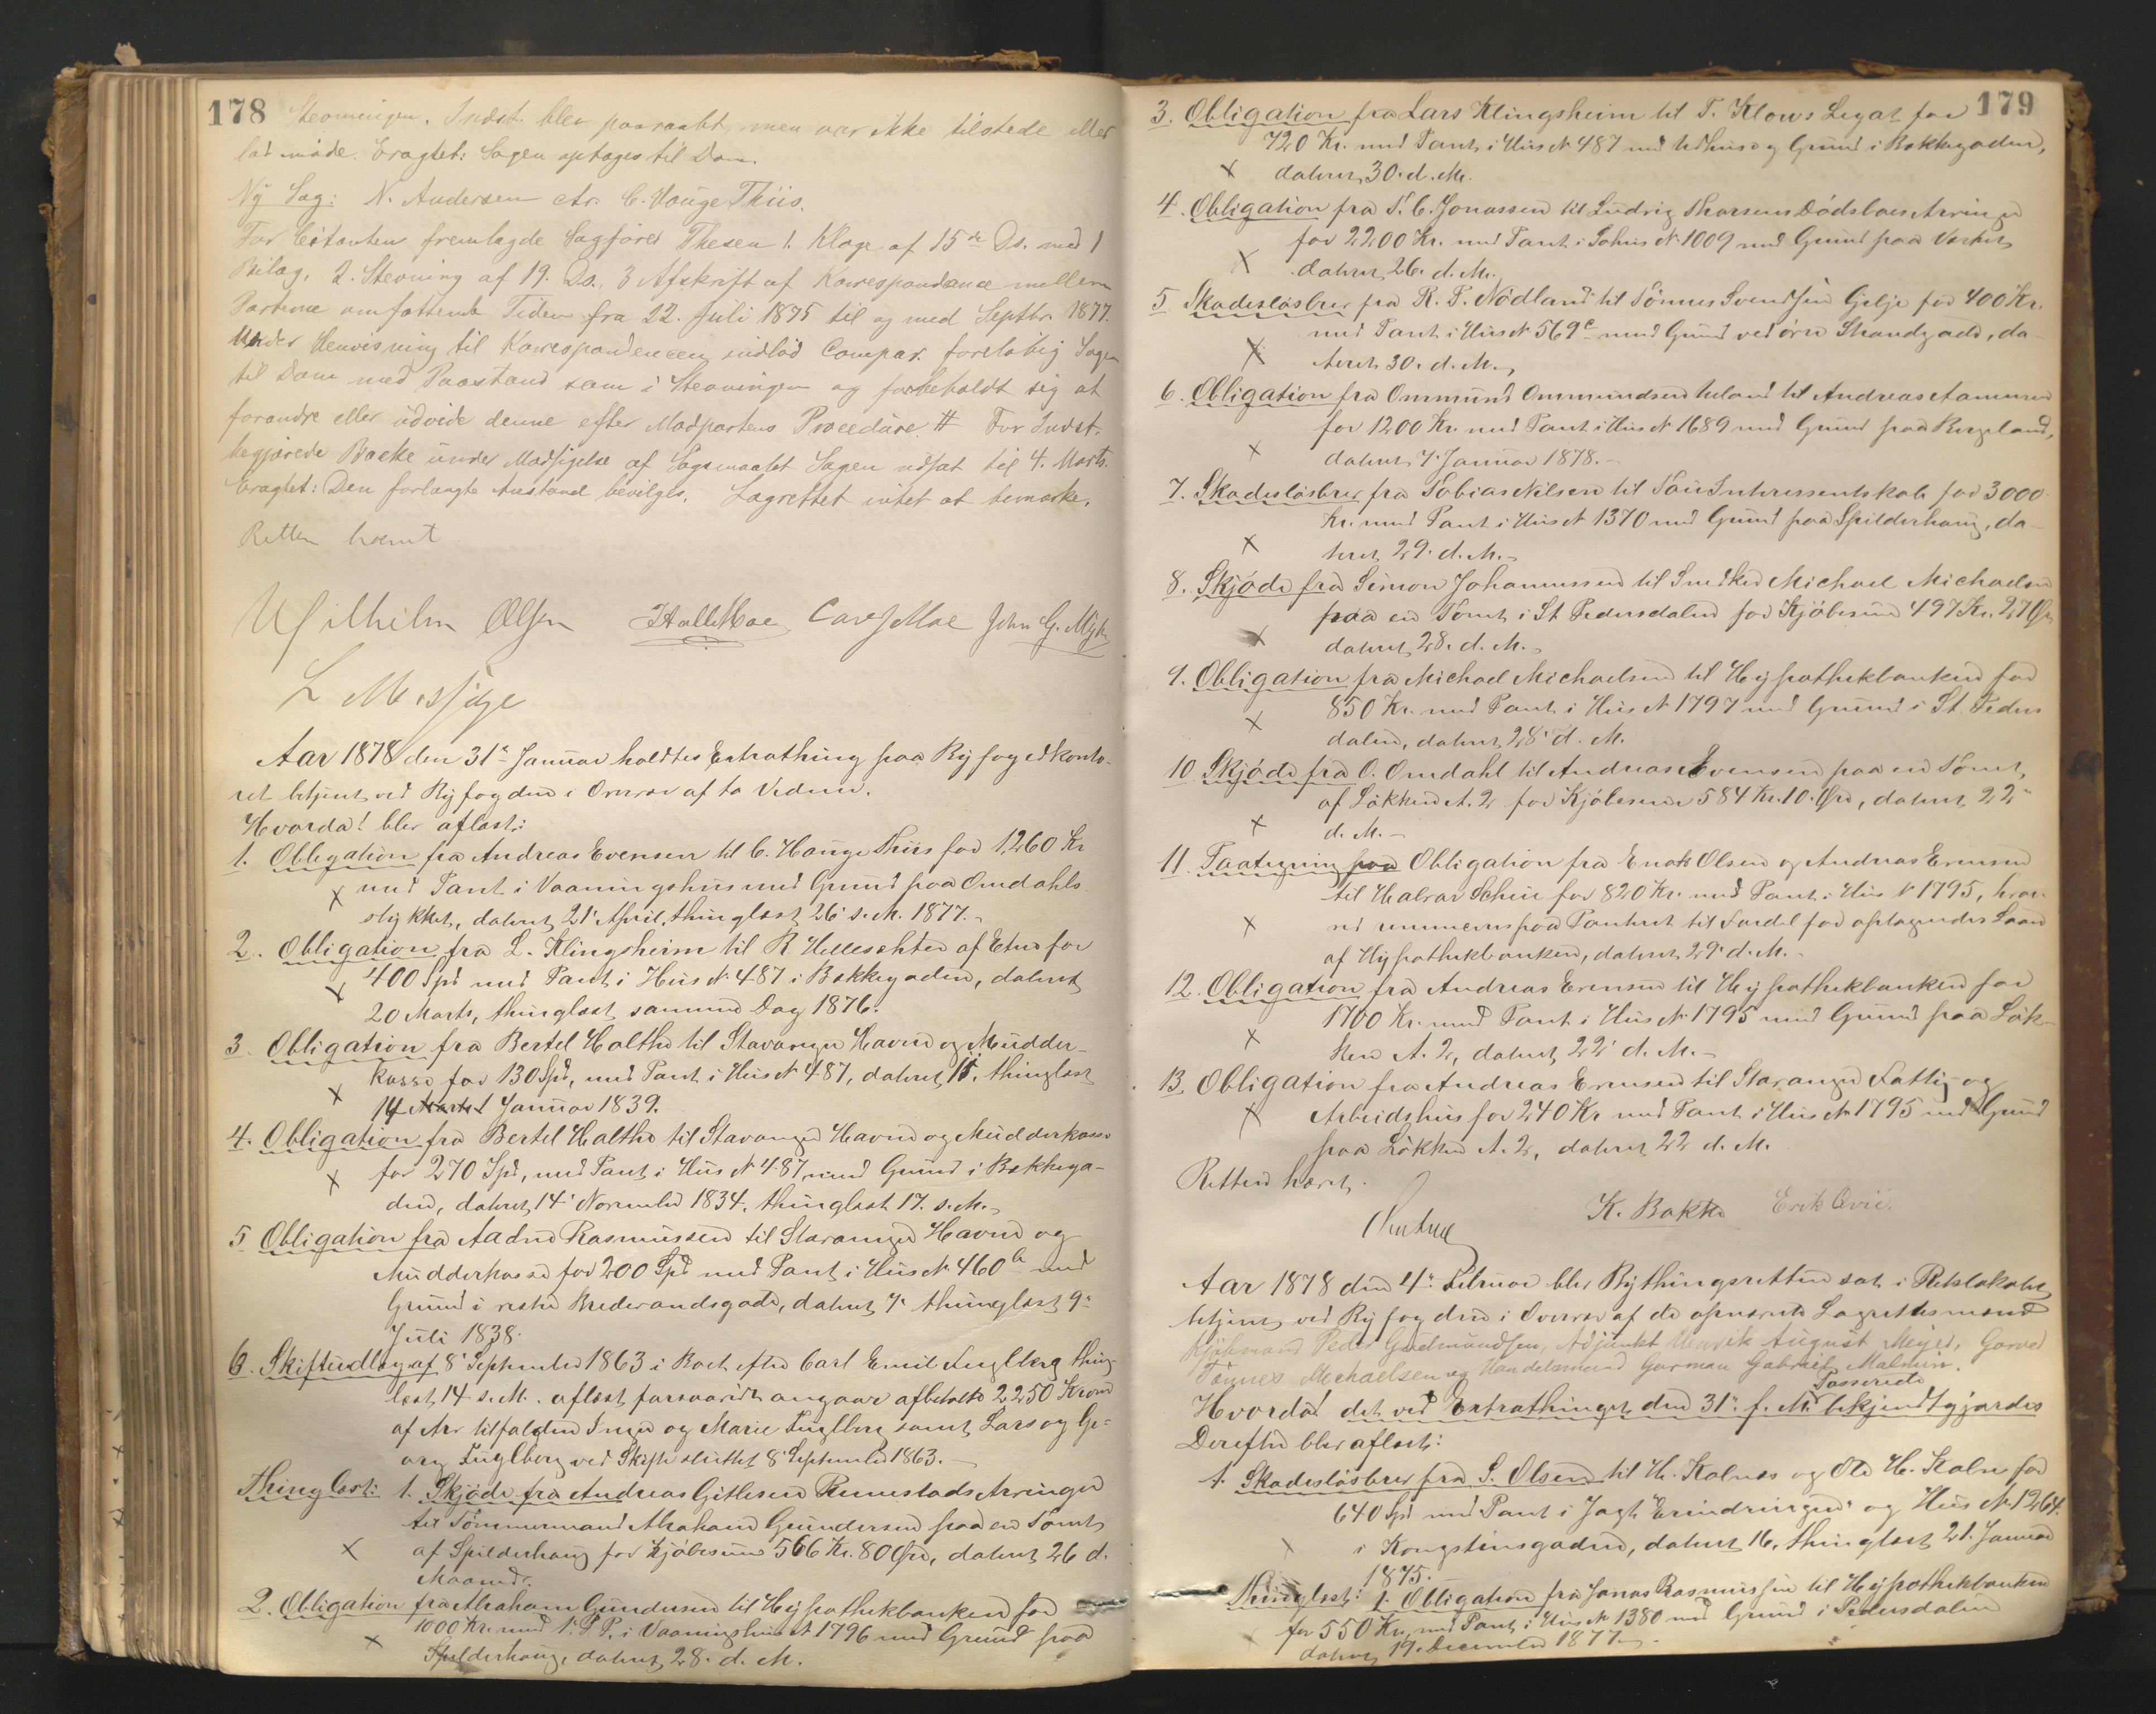 178
Stevningen. Indst. blev paaraabt, men var ikke tilstede eller
lod møde. Eragtet: Sagen optages til Dom.
Ny Sag: N. Andersen ctr. C. Hauge Thiis.
For Citanten fremlagde Sagfører Thesen 1. Klage af 15de Ds. med 1
Bilag, 2. Stevning af 19. Ds., 3 Afskrift af Korrespondance mellem
Parterne omfattende Tiden fra 22. Juli 1875 til og med Septbr. 1877.
Under Henvisning til Korrespondencen indlod Compar. foreløbig Sagen
til Dom med Paastand som i Stevningen og forbeholdt sig at
forandre eller udvide denne efter Modpartens Procedure. # For Indst.
begjærede Backe under Modsigelse af Søgsmaalet Sagen udsat til 4. Marts.
Eragtet: Den forlangte Anstand bevilges. Lagrettet intet at bemærke.
Retten hævet
Wilhelm Olsen John G.
Aar 1878 den 31te Januar holdtes Extrathing paa Byfogedkonto-
ret betjent ved Byfogden i Overvær af to Vidner.
Hvorda! blev aflæst:
1. Obligation fra Andreas Evensen til C. Hauge Thiis for 1260 Kr
x med Pant i Vaaningshus med Grund paa Omdahls
stykket, dateret 21' April, thinglæst 26' s. M. 1877.
2. Obligation fra L. Klingsheim til R Hellesehter af Etne for
x 400 Spd med Pant i Hus № 487 i Bakkegaden, dateret
20 Marts, thinglæst samme Dag 1876.
3. Obligation fra Bertel Halthe til Stavanger Havne og Mudder-
kasse for 130 Spd, med Pant i Hus № 487, dateret 11, thinglæst
x 14 Marts Januar 1839.
4. Obligation fra Bertel Halthe til Stavanger Havne og Mudderkasse
x for 270 Spd, med Pant i Hus № 487 med Grund i Bakkega-
den, dateret 14' November 1834, thinglæst 17. s. M.
5 Obligation fra Aadne Rasmussen til Stavanger Havne og
Mudderkasse for 200 Spd med Pant i Hus № 460b med
Grund i vestre Brederandsgade, dateret 7' thinglæst 9'
Juli 1838.
6. Skifteudlæg af 8' September 1863 i Boet efter Carl Emil Fuglberg thing
læst 14 s. M. aflæst forsaavidt angaar afbetalte 2250 Kroner
af Arv tilfalden Inger og Marie Fuglberg samt Lars og Ge-
org Fuglberg ved Skifte sluttet 8' September 1863.
Thinglæst: 1. Skjøde fra Andreas Gitlesen Rennestads Arvinger
til Tømmermand Abraham Gundersen paa en Tomt
x af Spilderhaug for Kjøbesum 566 Kr. 80 Øre, dateret 26 d.
Maaned.
2. Obligation fra Abraham Gundersen til Hypothekbanken for
1000 Kr. med 1. P. P. i Vaaningshus № 1796 med Grund paa
x Spilderhaug, dateret 28. d. M.
179
3. Obligation fra Lars Klingsheim til T. Klows Legat for
720 Kr. med Pant i Hus № 487 med Udhus og Grund i Bakkegaden,
x dateret 30. d. M.
4. Obligation fra S. C. Jonassen til Ludvig Thorsens Dødsboes Arvinger
for 2200 Kr. med Pant i Søhus № 1009 med Grund paa Værket
x dateret 26. d. M.
5 Skadesløsbrev fra R. T. Nødland til Tønnes Svendsen Gilje for 400 Kr.
med Pant i Hus № 569c med Grund ved øvre Strandgade, da-
x teret 30. d. M.
6. Obligation fra Ommund Ommundsen Ueland til Andreas Aamunsen
for 1200 Kr. med Pant i Hus № 1689 med Grund paa Bergeland,
x dateret 7. Januar 1878.
7. Skadesløsbrev fra Tobias Nilsen til Tau Interessentskab for 3000
Kr. med Pant i Hus № 1370 med Grund paa Spilderhaug, da-
x teret 29. d. M.
8. Skjøde fra Simon Johannessen til Snedker Michael Michaelsen
paa en Tomt i St Pedersdalen for Kjøbesum 497 Kr. 27 Øre
x dateret 28. d. M.
9. Obligation fra Michael Michaelsen til Hypothekbanken for
850 Kr. med Pant i Hus № 1797 med Grund i St. Peders
x dalen, dateret 28' d. M.
10 Skjøde fra O. Omdahl til Andreas Evensen paa en Tomt,
af Løkken A. 2 for Kjøbesum 584 Kr. 10. Øre, dateret 22'
x d. M.
11. Paategning paa Obligation fra Enok Olsen og Andreas Evensen
til Halvar Schie for 820 Kr. med Pant i Hus № 1795, hvor-
x ved rømmes paa Panteret til Fordel for optagendes Laan
af Hypothekbanken, dateret 29' d. M.
12. Obligation fra Andreas Evensen til Hypothekbanken for
1700 Kr. med Pant i Hus № 1795 med Grund paa Løk-
x ken A. 2, dateret 22' d. M.
13. Obligation fra Andreas Evensen til Stavanger Fattig- og
x Arbeidshus for 240 Kr med Pant i Hus № 1795 med Grund
paa Løkken A. 2, dateret 22 d. M.
Retten hævet.
K. Bakke Erik Qvie.
Aar 1878 den 4de Februar blev Bythingsretten sat i Retslokalet
betjent ved Byfogden i Overvær af de opnævnte Lagrettesmænd
Kjøbmand Peder Gudmundsen, Adjunkt Henrik August Meyer, Garver
Tønnes Michaelsen og Handelsmand Gorman Gabriel Malmin.
Passerede
Hvorda! det ved Extrathinget den 31te f. M. bekjendtgjordes
Derefter blev aflæst:
1. Skadesløsbrev fra S. Olsen til H. Kalnæs og Ole H. Kaln for
640 Spd med Pant i Jagt "Erindringen" og Hus № 1264.
x i Kongstensgaden, dateret 16, thinglæst 21. Januar
1875.
Thinglæst: 1. Obligation fra Jonas Rasmussen til Hypothekbanken
for 550 Kr. med Pant i Hus № 1380 med Grund i Pedersdalen
x dateret 19. December 1877.